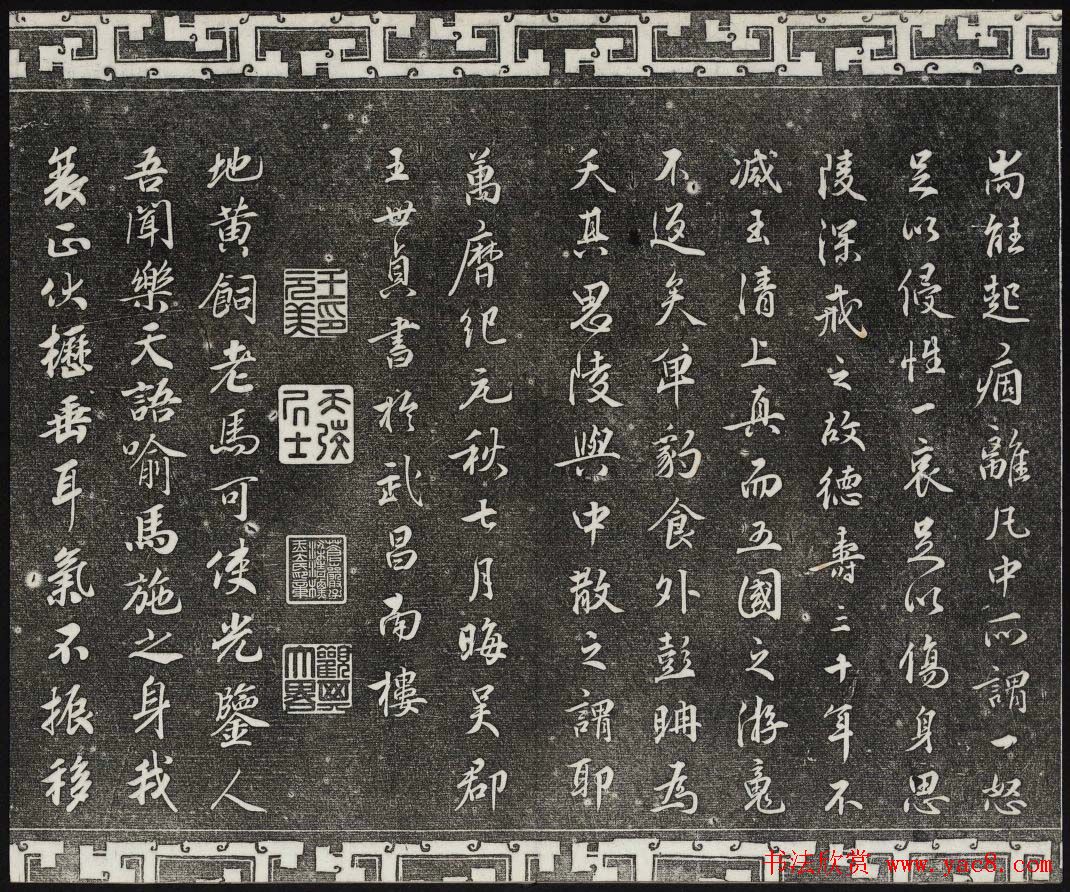 尚能起痼離凡中所謂一怒
足以侵性一哀足以傷身思
陵深戒之故德壽三十年不
减玉清上真而五國之游竟
不返矣單豹食外彭聃為
夭其思陵與中散之謂耶
萬曆紀元秋七月晦吳郡
王世貞書於武昌南樓
王印元美
天弢居士
地黄飼老馬可使光鑒人
吾聞樂天語喻馬施之身我
衰正伏櫪垂耳氣不振移
书法欣赏 www.yac8.com